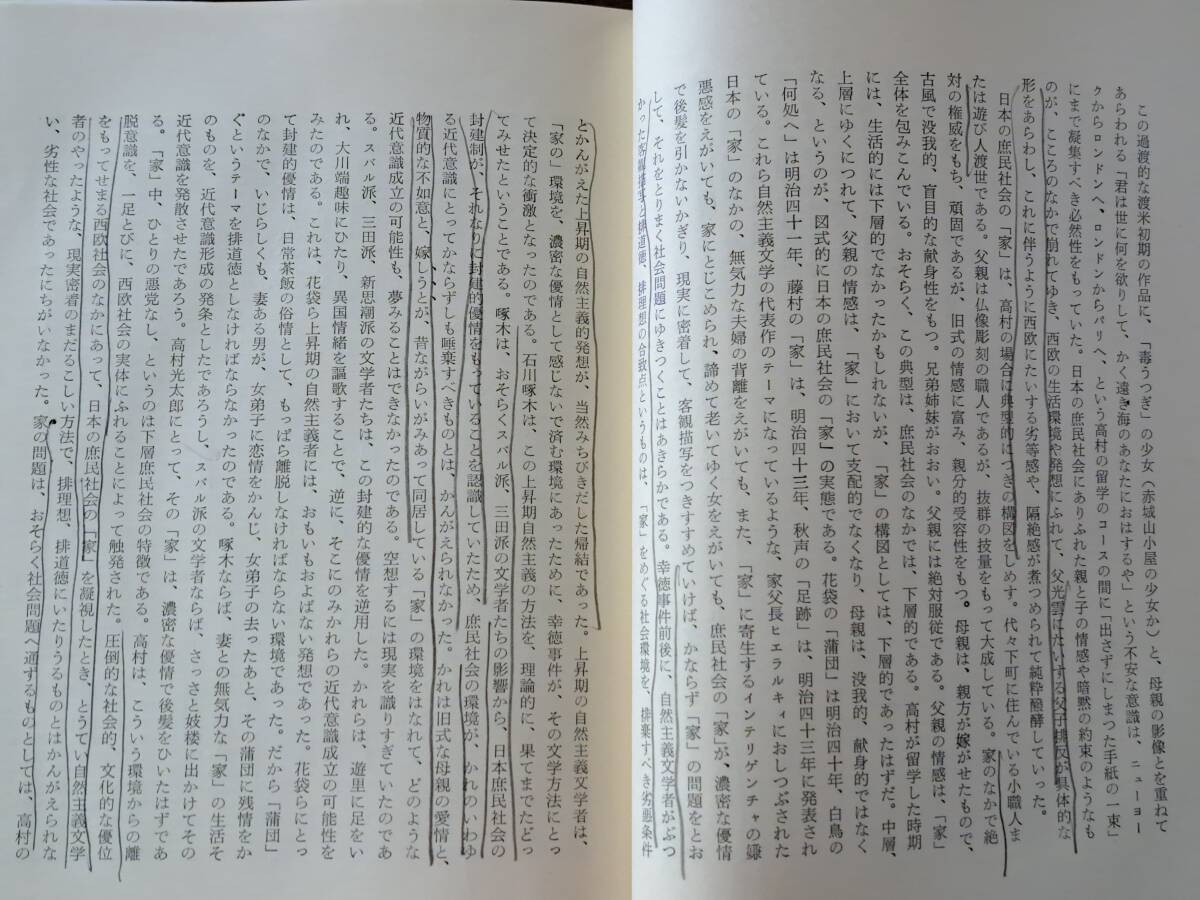 この過渡的な渡米初期の作品に、「毒うつぎ」の少女(赤城山小屋の少女か)と、母親の影像とを重ねて
あらわれる「君は世に何を欲りして、かく遠き海のあなたにおはするや」という不安な意識は、ニューヨー
クからロンドンへ、ロンドンからパリへ、という高村の留学のコースの間に「出さずにしまつた手紙の一束」
にまで凝集すべき必然性をもっていた。日本の庶民社会にありふれた親と子の情感や暗黙の約束のようなも
のが、こころのなかで崩れてゆき、西欧の生活環境や発想にふれて、父光雲にたいする父子排反が具体的な
形をあらわし、これに伴うように西欧にたいする劣等感や、隔絶感が煮つめられて純粋醗酵していった。
日本の庶民社会の「家」は、高村の場合に典型的につぎの構図をしめす。代々下町に住んでいる小職人ま
たは遊び人渡世である。父親は仏像彫刻の職人であるが、抜群の技量をもって大成している。家のなかで絶
対の権威をもち、頑固であるが、旧式の情感に富み、親分的受容性をもつ。母親は、親方が嫁がせたもので、
古風で没我的、盲目的な献身性をもつ。兄弟姉妹がおおい。父親には絶対服従である。父親の情感は、「家」
全体を包みこんでいる。おそらく、この典型は、庶民社会のなかでは、下層的である。高村が留学した時期
には、生活的には下層的でなかったかもしれないが、「家」の構図としては、下層的であったはずだ。中層、
上層にゆくにつれて、父親の情感は、「家」において支配的でなくなり、母親は、没我的、献身的ではなく
なる、というのが、図式的に日本の庶民社会の「家」の実態である。花袋の「蒲団」は明治四十年、白鳥の
「何処へ」は明治四十一年、藤村の「家」は、明治四十三年、秋声の「足跡」は、明治四十三年に発表され
ている。これら自然主義文学の代表作のテーマになっているような、家父長ヒエラルキイにおしつぶされた
日本の「家」のなかの、無気力な夫婦の背離をえがいても、また、「家」に寄生するインテリゲンチャの嫌
悪感をえがいても、家にとじこめられ、諦めて老いてゆく女をえがいても、庶民社会の「家」が、濃密な優情
で後髪を引かないかぎり、現実に密着して、客観描写をつきすすめていけば、かならず「家」の問題をとお
して、それをとりまく社会問題にゆきつくことはあきらかである。幸徳事件前後に、自然主義文学者がぶつ
かった客観描写と排道徳、排理想の合致点というものは、「家」をめぐる社会環境を、排棄すべき劣悪条件
とかんがえた上昇期の自然主義的発想が、当然みちびきだした帰結であった。上昇期の自然主義文学者は、
「家の」環境を、濃密な優情として感じないで済む環境にあったために、幸徳事件が、その文学方法にとっ
て決定的な衝激となったのである。石川啄木は、この上昇期自然主義の方法を、理論的に、果てまでたどっ
てみせたということである。啄木は、おそらくスバル派、三田派の文学者たちの影響から、日本庶民社会の
封建制が、それなりに封建的優情をもっていることを認識していたため、庶民社会の環境が、かれのいわゆ
る近代意識にとってかならずしも唾棄すべきものとは、かんがえられなかった。かれは旧式な母親の愛情と、
物質的な不如意と、嫁しうとが、昔ながらいがみあって同居している「家」の環境をはなれて、どのような
近代意識成立の可能性も、夢みることはできなかったのである。空想するには現実を識りすぎていたのであ
る。スバル派、三田派、新思潮派の文学者たちは、この封建的な優情を逆用した。かれらは、遊里に足をい
れ、大川端趣味にひたり、異国情緒を謳歌することで、逆に、そこにのみかれらの近代意識成立の可能性を
みたのである。これは、花袋ら上昇期の自然主義者には、おもいもおよばない発想であった。花袋らにとっ
て封建的優情は、日常茶飯の俗情として、もっぱら離脱しなければならない環境であった。だから「蒲団」
のなかで、いじらしくも、妻ある男が、女弟子に恋情をかんじ、女弟子の去ったあと、その蒲団に残情をか
ぐというテーマを排道徳としなければならなかったのである。啄木ならば、妻との無気力な「家」の生活そ
のものを、近代意識形成の発条としたであろうし、スバル派の文学者ならば、さっさと妓楼に出かけてその
近代意識を発散させたであろう。高村光太郎にとって、その「家」は、濃密な優情で後髪をひいたはずであ
る。「家」中、ひとりの悪党なし、というのは下層庶民社会の特徴である。高村は、こういう環境からの離
脱意識を、一足とびに、西欧社会の実体にふれることによって触発された。圧倒的な社会的、文化的な優位
をもってせまる西欧社会のなかにあって、日本の庶民社会の「家」を凝視したとき、とうてい自然主義文学
者のやったような、現実密着のまだるこしい方法で、排理想、排道徳にいたりうるものとはかんがえられな
い、劣性な社会であったにちがいなかった。家の問題は、おそらく社会問題へ通ずるものとしては、高村の